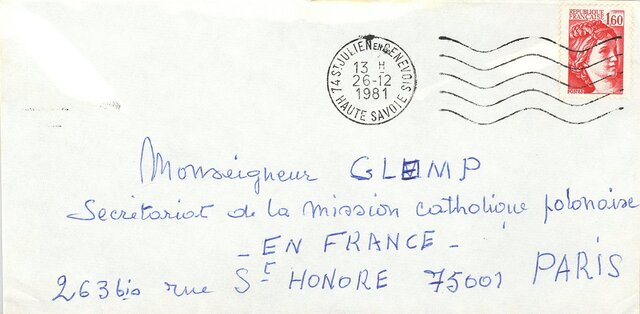 RÉPUBLIQUE FRANÇAISE
1,60
POSTES
74 ST JULIEN EN GENEVOIS
13 H
26-12
1981
HAUTE SAVOIE
Monseigneur GLEMP
Secrétariat de la mission catholique polonaise
- EN FRANCE -
263 bis rue St HONORE 75001 PARIS